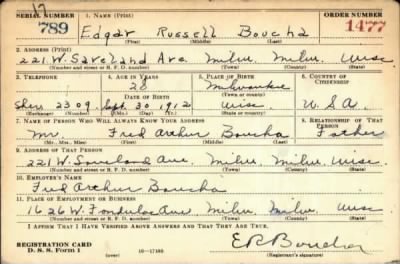 17
SERIAL NUMBER 1. NAME (Print) ORDER NUMBER
789 Edgar Russell Boucha 1477
(First) (Middle) (Last)
2. ADDRESS (Print)
221 W. Saveland Ave. Milw. Milw. Wisc.
(Number and street or R. F. D. number) (Town) (County) (State)
3. TELEPHONE 4. AGE IN YEARS 5. PLACE OF BIRTH 6. COUNTRY OF CITIZENSHIP
28 Milwaukee
DATE OF BIRTH (Town or county)
Sher. 2309 Sept. 30 1912 Wisc. U.S.A.
(Exchange) (Number) (Mo.) (Day) (Yr.) (State or country)
7. NAME OF PERSON WHO WILL ALWAYS KNOW YOUR ADDRESS 8. RELATIONSHIP OF THAT PERSON
Mr. Fred Arthur Boucha Father
(Mr., Mrs., Miss) (First) (Middle) (Last)
9. ADDRESS OF THAT PERSON
221 W. Saveland Ave. Milw. Milw. Wisc.
(Number and street or R. F. D. number) (Town) (County) (State)
10. EMPLOYER'S NAME
Fred Arthur Boucha
11. PLACE OF EMPLOYMENT OR BUSINESS
1626 W. Fondulac Ave Milw. Milw. Wisc.
(Number and street or R. F. D. number) (Town) (County) (State)
I AFFIRM THAT I HAVE VERIFIED ABOVE ANSWERS AND THAT THEY ARE TRUE.
REGISTRATION CARD E R Boucha
D. S. S. Form 1 (over) 16—17105 (Registrant's signature)